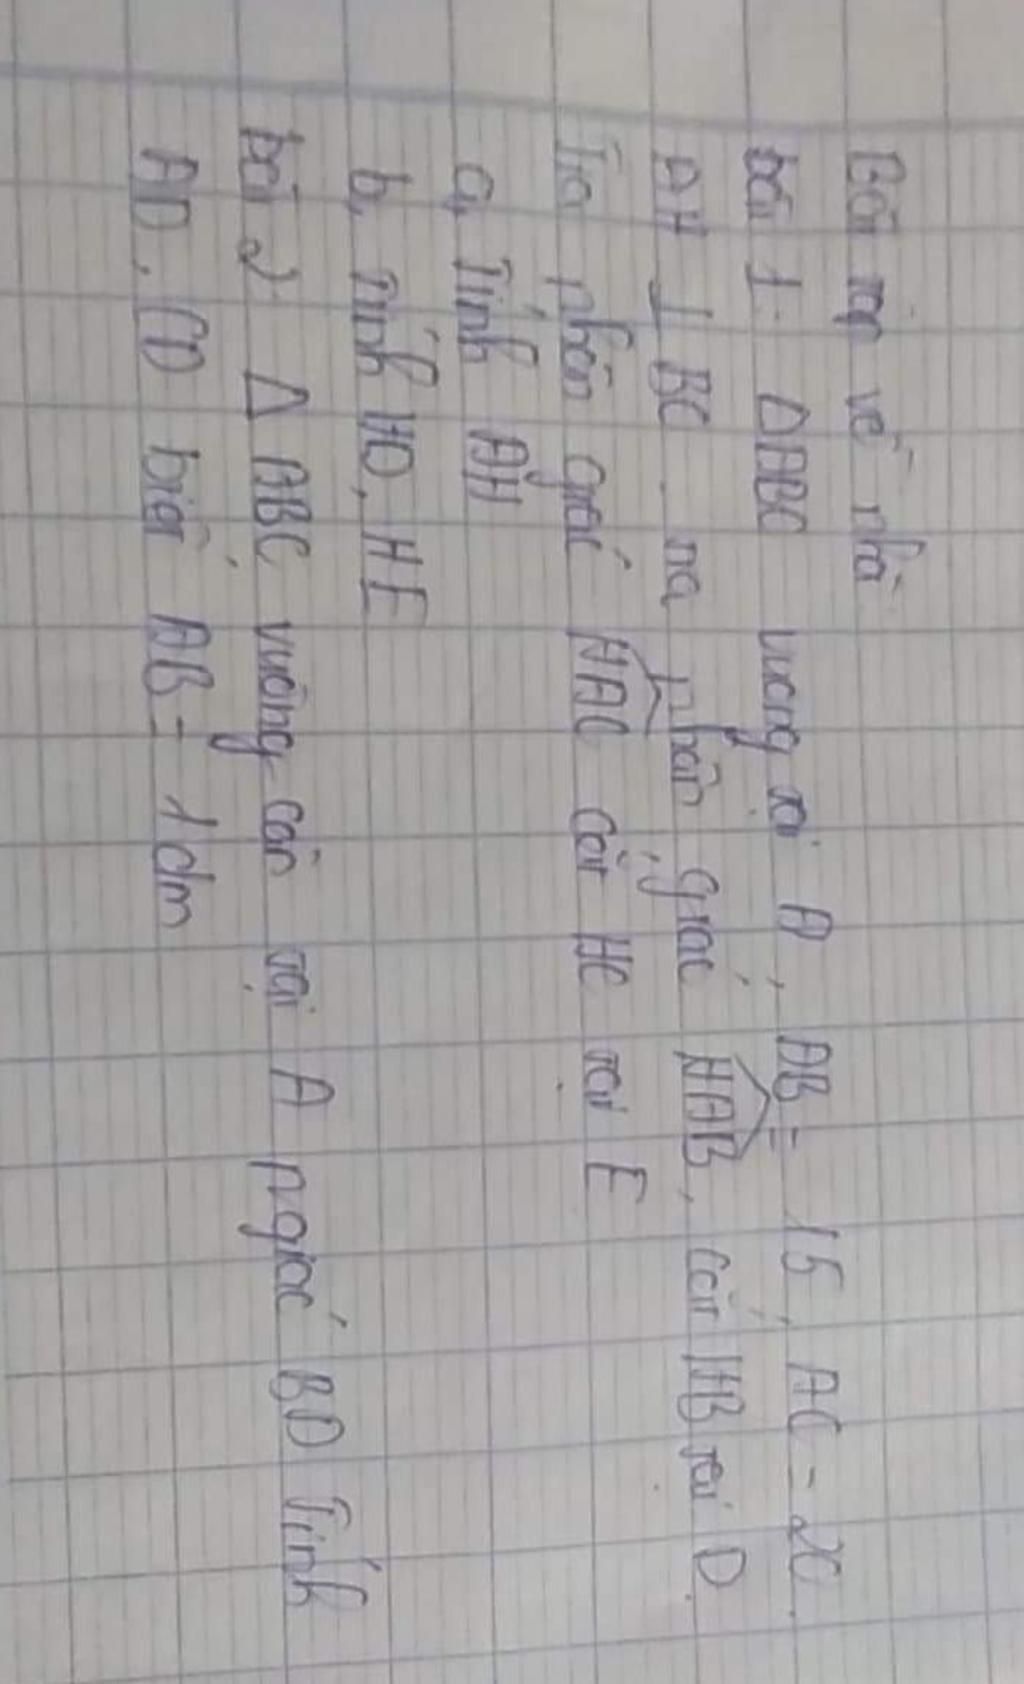 Bài tập về nhà
bài 1: ΔABC vuông tại A, AB = 15, AC = 20.
AH ⊥ BC. Tia phân giác HAB, cắt HB tại D
Tia phân giác HAC cắt HC tại E
a, Tính AH
b, Tính HD, HE
bài 2: Δ ABC vuông cân tại A pgiác BD Tính
AD, CD biết AB = 1dm